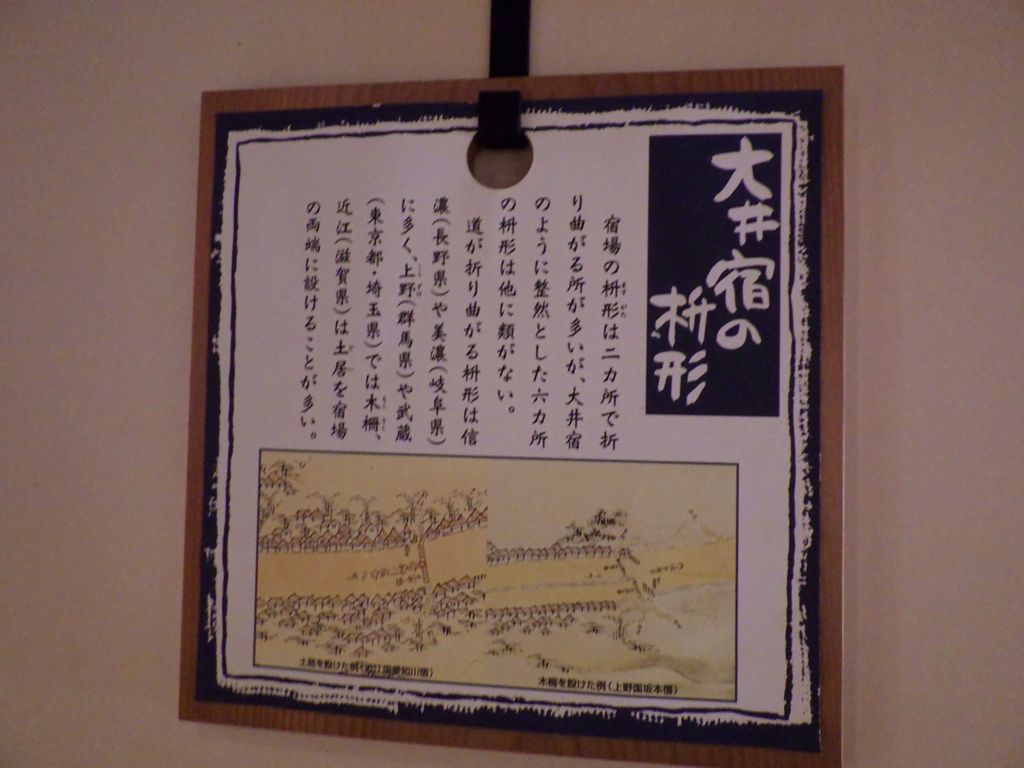 大井宿の
枡形
宿場の枡形は二カ所で折
り曲がる所が多いが、大井宿
のように整然とした六カ所
の枡形は他に類がない。
道が折り曲がる枡形は信
濃(長野県)や美濃(岐阜県)
に多く、上野(群馬県)や武蔵
(東京都・埼玉県)では木柵、
近江(滋賀県)は土居を宿場
の両端に設けることが多い。
土居を設けた例(近江国愛知川宿)
木柵を設けた例(上野国坂本宿)